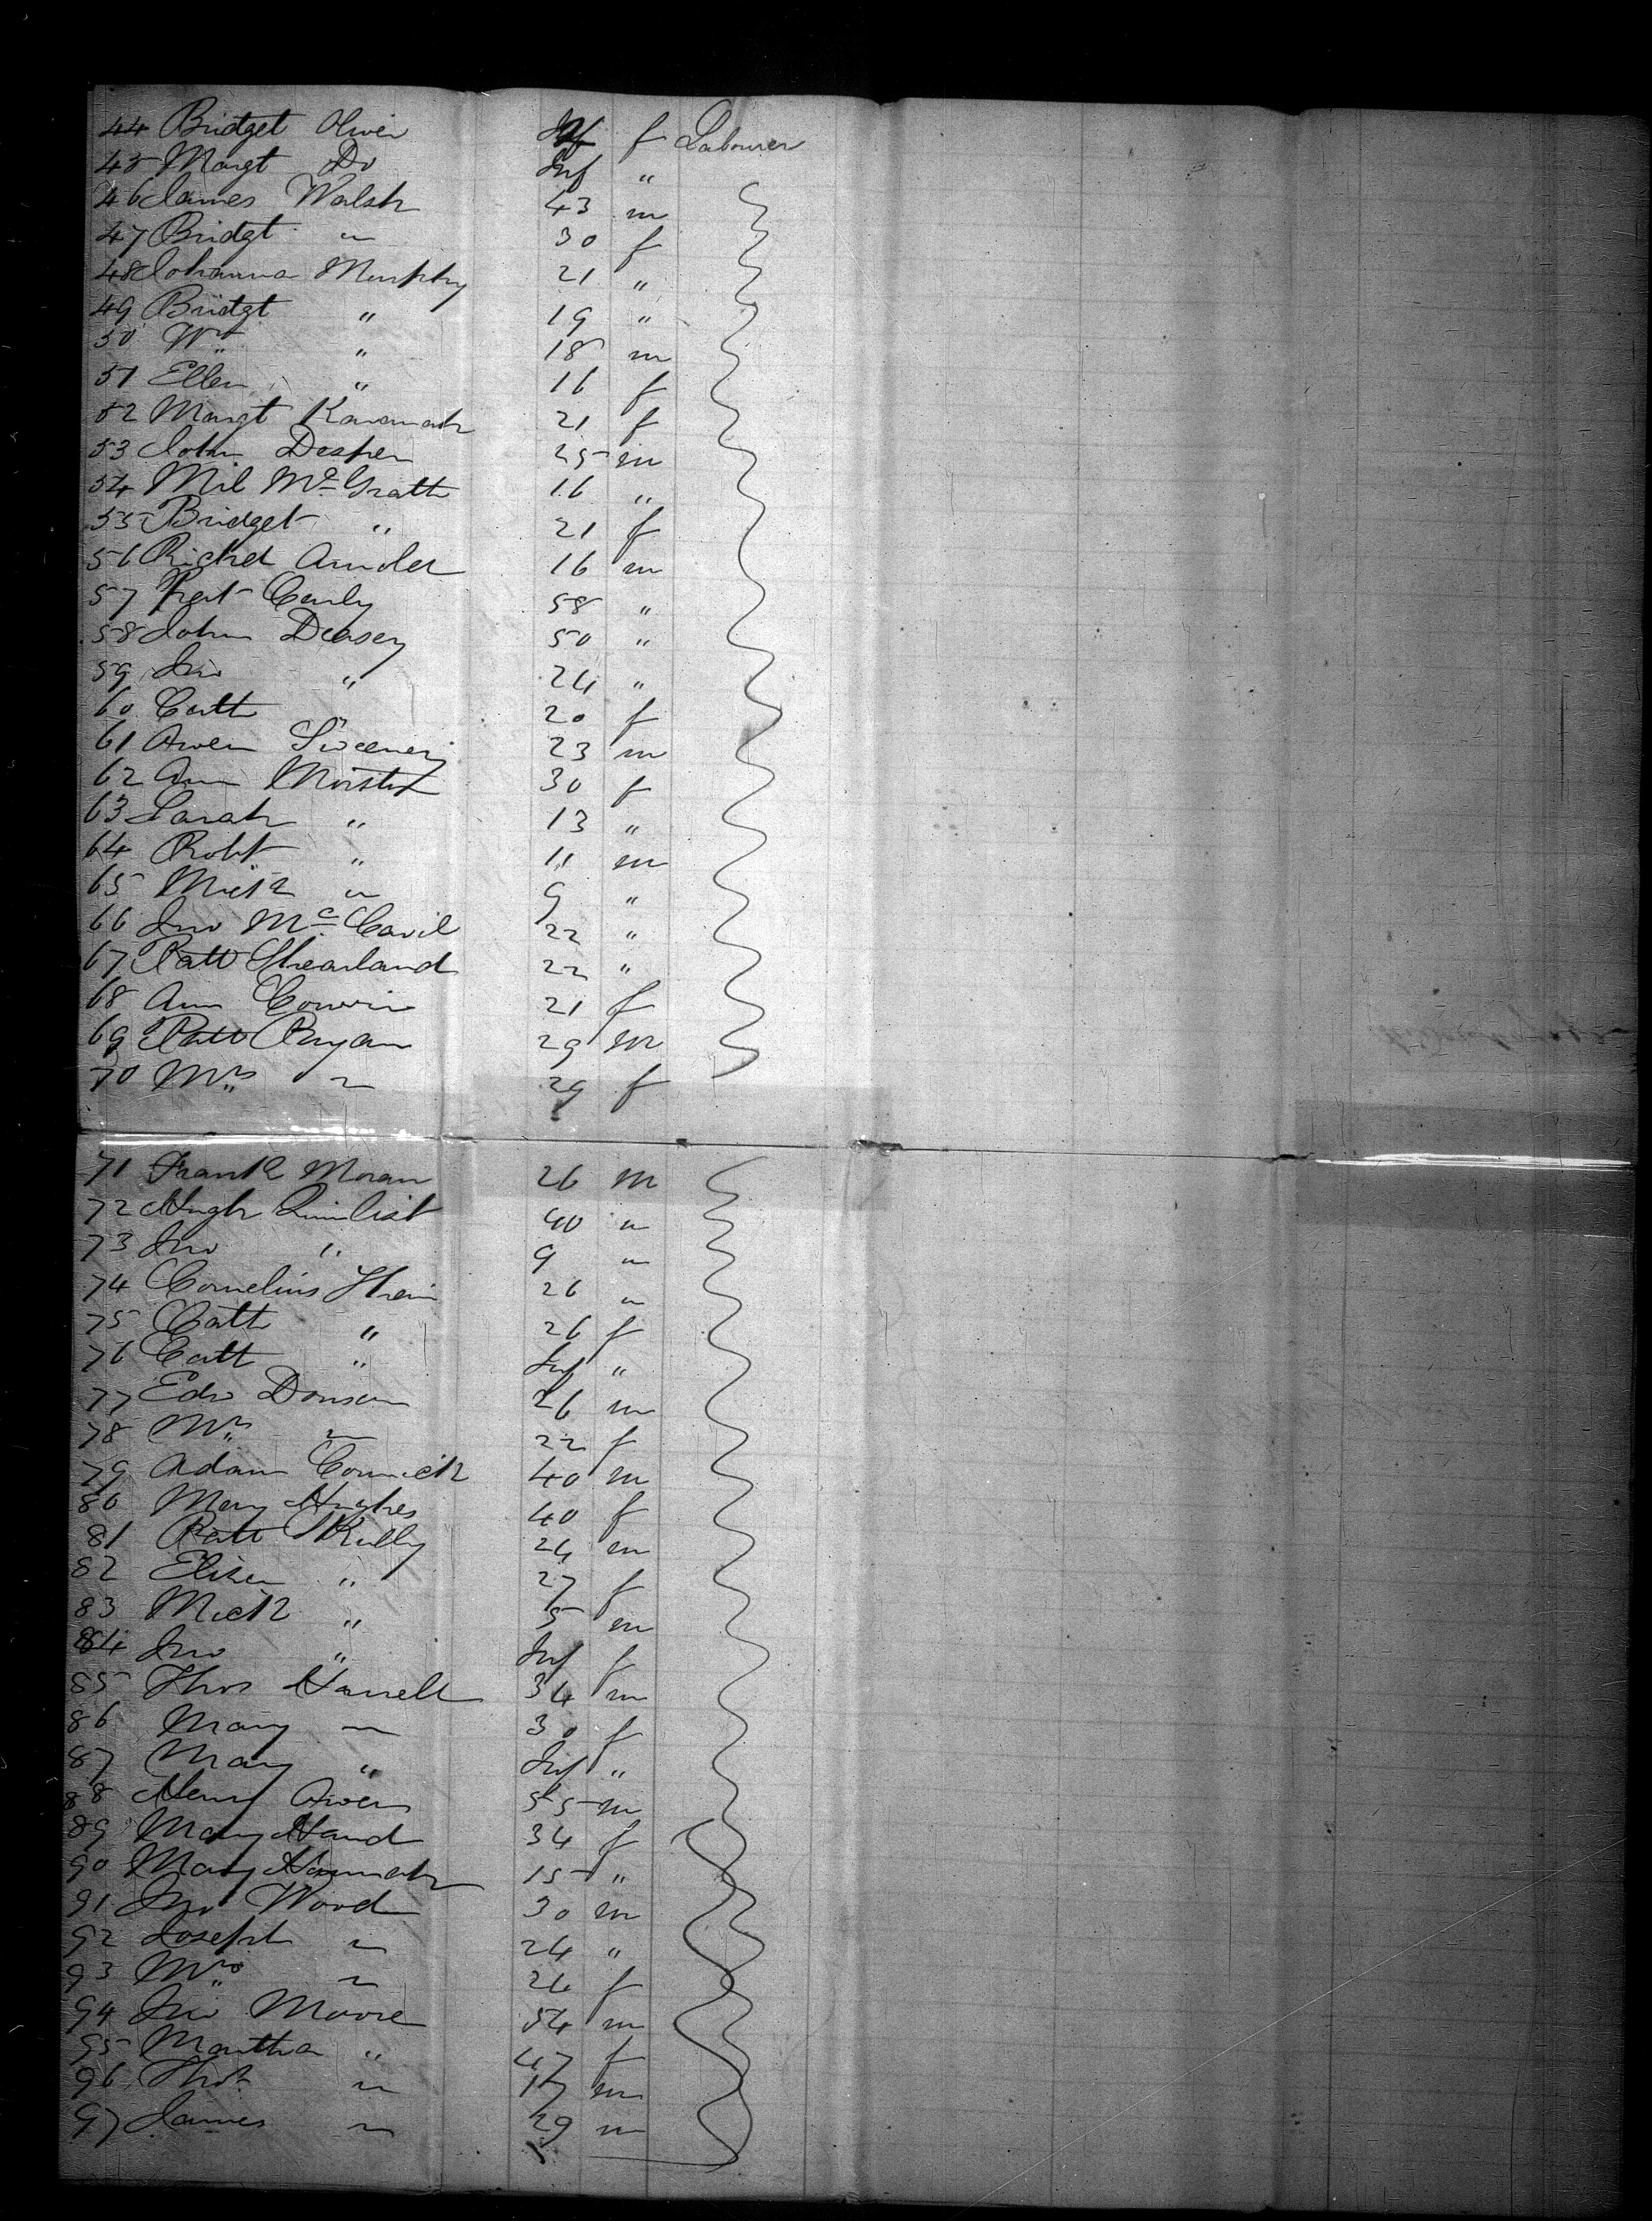 44 Bridget Oliver Inf f Labourer
45 Margt Do Inf "
46 James Walsh 43 m
47 Bridgt " 30 f
48 Johanna Murphy 21 "
49 Bridgt " 19 "
50 Wm " 18 m
51 Ellen " 16 f
52 Margt Kavanah 21 f
53 John 25 m
54 Mil McGrath 16 "
55 Bridget " 21 f
56 Richd Arnold 16 m
57 Pat 58 "
58 John Deasey 50 "
59 Jno " 24 "
60 Cath 20 f
61 Owen Sweeney 23 m
62 Ann 30 f
63 Sarah " 13 "
64 Robt " 11 m
65 Mick " 9 "
66 Jno McCavil 22 "
67 Patt Shearland 22 "
68 Ann 21 f
69 Patt Ryan 29 m
70 Mrs " 29 f
71 Frank Moran 26 m
72 Hugh 40 "
73 Jno " 9 "
74 Cornelius 26 "
75 Cath " 26 f
76 Cath " Inf "
77 Edw 26 m
78 Mrs " 22 f
79 Adam 40 m
80 Mary Hughes 40 f
81 Patt 24 m
82 Eliza " 27 f
83 Mick " 5 m
84 Jno " Inf f
85 Thos Harrell 34 m
86 Mary " 30 f
87 Mary " Inf "
88 Henry Owens 55 m
89 Mary Hand 34 f
90 Mary Hannah 15 "
91 Jno Wood 30 m
92 Joseph " 24 "
93 Mrs " 24 f
94 Jno Moore 54 m
95 Martha " 47 f
96 Thos " 17 m
97 James " 29 m